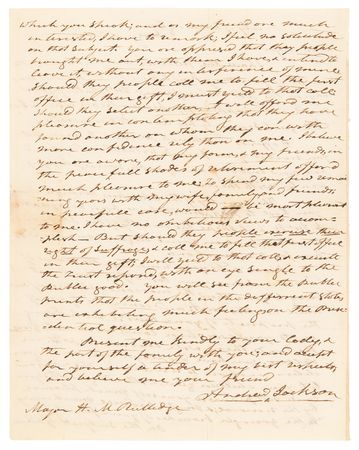 which you speak; and as my friends are much
interested, I have to remark; I feel no solicitude
on that subject. You are apprised that the people
brought me out, with them I have, & intend to
leave it, without any interference of mine
should they people call me to fill the first
office in their gift, I must yield to that call
should they select another — it will afford me
pleasure in contemplating that they have
found another on whom they can with
more confidence rely than on me. believe
you are aware, that my farm, & my friends, in
the peacefull shades of retirement afford
much pleasure to me; to spend my few remain
ing years with my wife, family and friends,
in peacefull ease, would be most pleasing
to me. I have no ambitious views to accom-
plish — But should they people exercise their
right of suffrage & call me to fill the first office
in their gift, I will yield to that call & execute
the trust reposed, with an eye single to the
Public good. You will see from the Public
prints that the people in the different States,
are exhibiting much feeling on the Presi
dential question.
Present me kindly to your Lady, &
the part of the family with you; and accept
for yourself a tender of my best respects,
and believe me your friend
Andrew Jackson
Major H. M. Rutledge